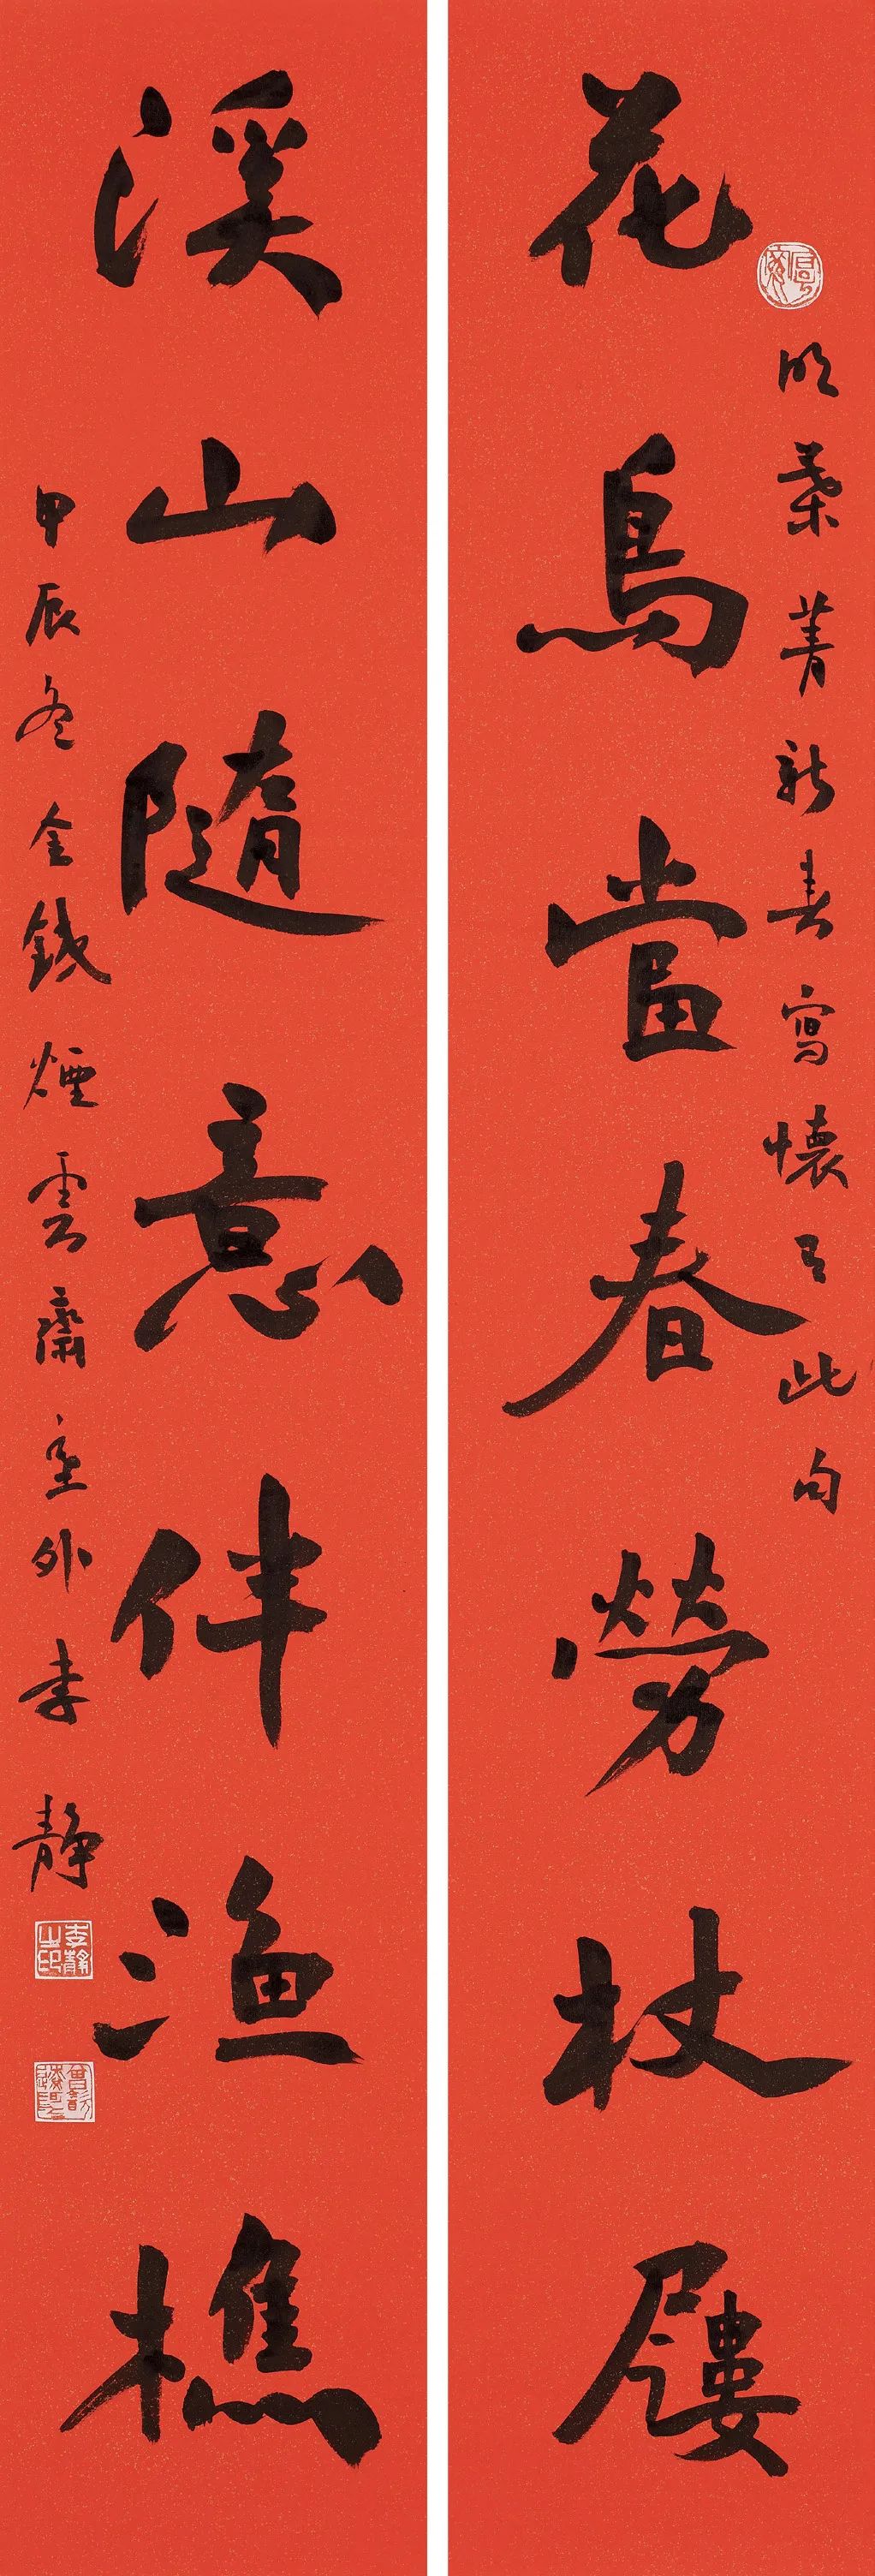 明葉菁新春寫懷有此句
花鳥當春勞杖屨
溪山隨意伴漁樵
甲辰冬金煙雲齋室外李静
李靜之印